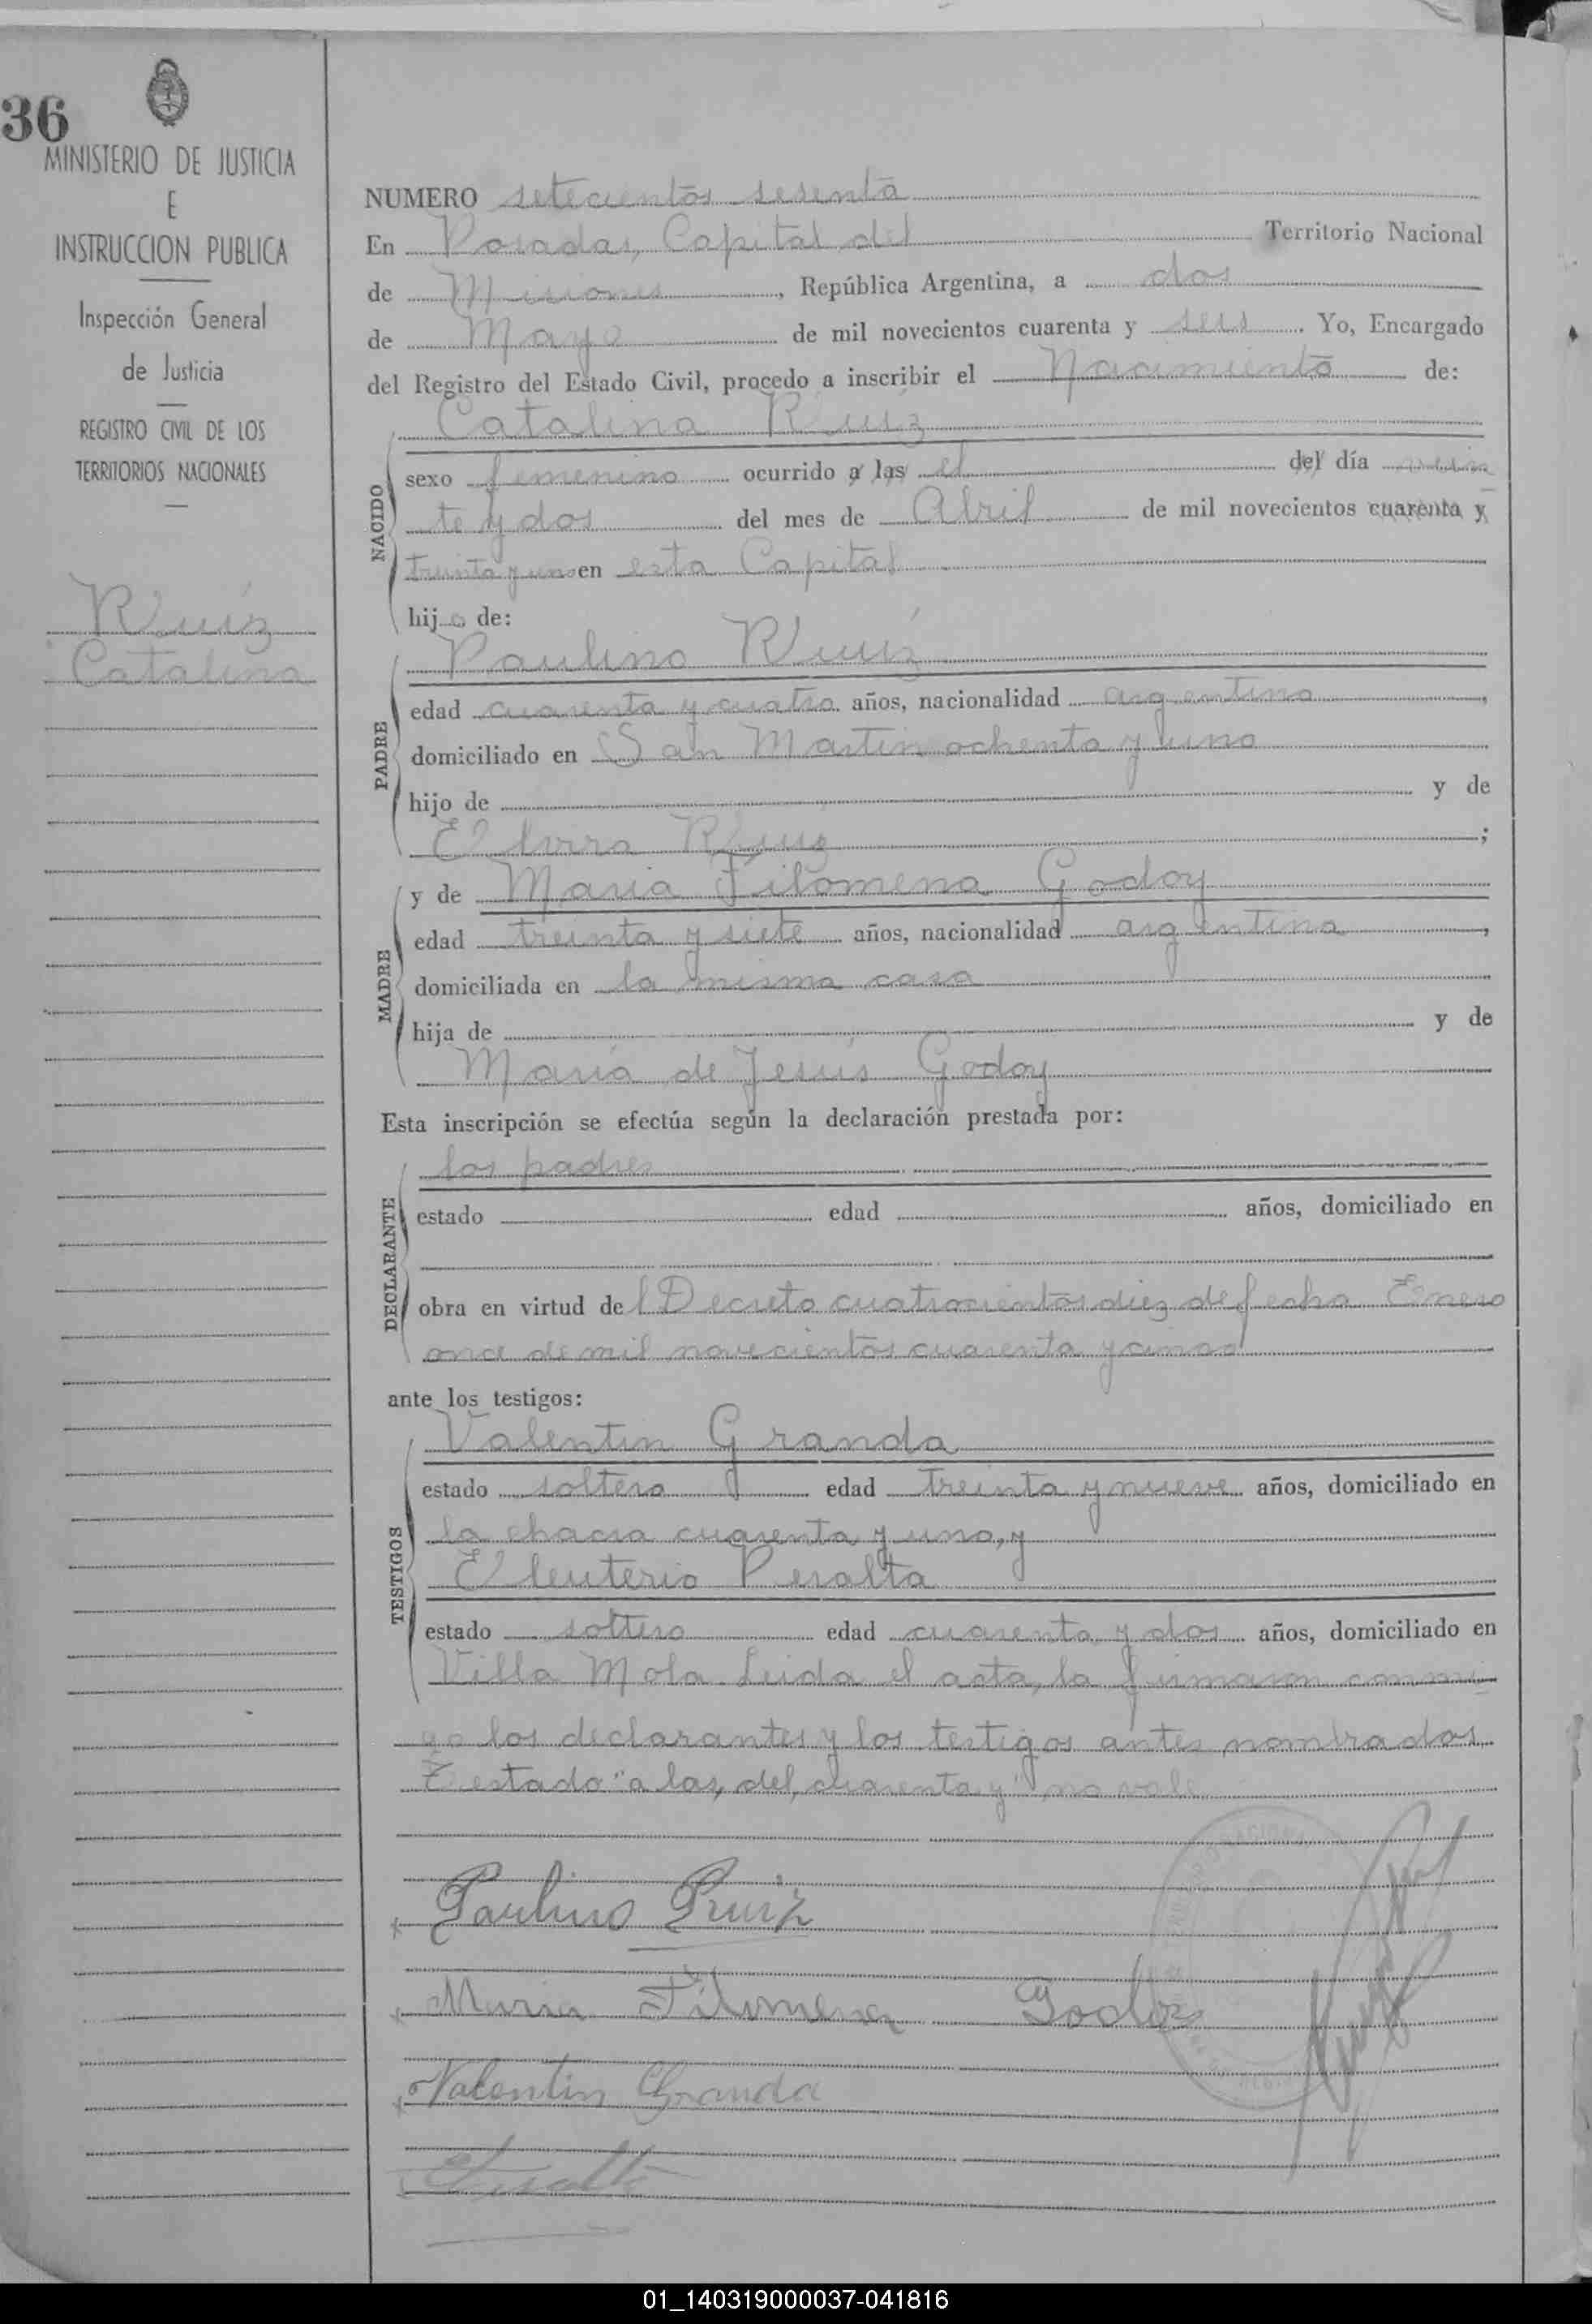 36
MINISTERIO DE JUSTICIA
E
INSTRUCCION PUBLICA
Inspección General
de Justicia
REGISTRO CIVIL DE LOS
TERRITORIOS NACIONALES
Ruíz
Catalina
NUMERO setecientos sesenta
En Posadas, Capital del Territorio Nacional
de Misiones, República Argentina, a dos
de Mayo de mil novecientos cuarenta y seis. Yo, Encargado
del Registro del Estado Civil, procedo a inscribir el Nacimiento de:
Catalina Ruíz
NACIDO
sexo femenino ocurrido a las el del día vein
te y dos del mes de Abril de mil novecientos cuarenta y
treinta y uno en esta Capital
hija de:
Paulino Ruíz
PADRE
edad cuarenta y cuatro años, nacionalidad argentino,
domiciliado en San Martin ochenta y uno
hijo de y de
Elvira Ruiz;
y de Maria Filomena Godoy
MADRE
edad treinta y siete años, nacionalidad argentina,
domiciliada en la misma casa
hija de y de
María de Jesús Godoy
Esta inscripción se efectúa según la declaración prestada por:
los padres
DECLARANTE
estado edad años, domiciliado en
obra en virtud del Decreto cuatrocientos diez de fecha Enero
once de mil novecientos cuarenta y cinco
ante los testigos:
Valentin Granda
TESTIGOS
estado soltero edad treinta y nueve años, domiciliado en
la chacra cuarenta y uno, y
Eleuterio Peralta
estado soltero edad cuarenta y dos años, domiciliado en
Villa Mola. Leida el acta, la firmaron conmi
go los declarantes y los testigos antes nombrados.
Testado "a las, del, cuarenta y" no vale
Paulino Ruiz
Maria Filomena Godoy
Valentin Granda
01_140319000037-041816